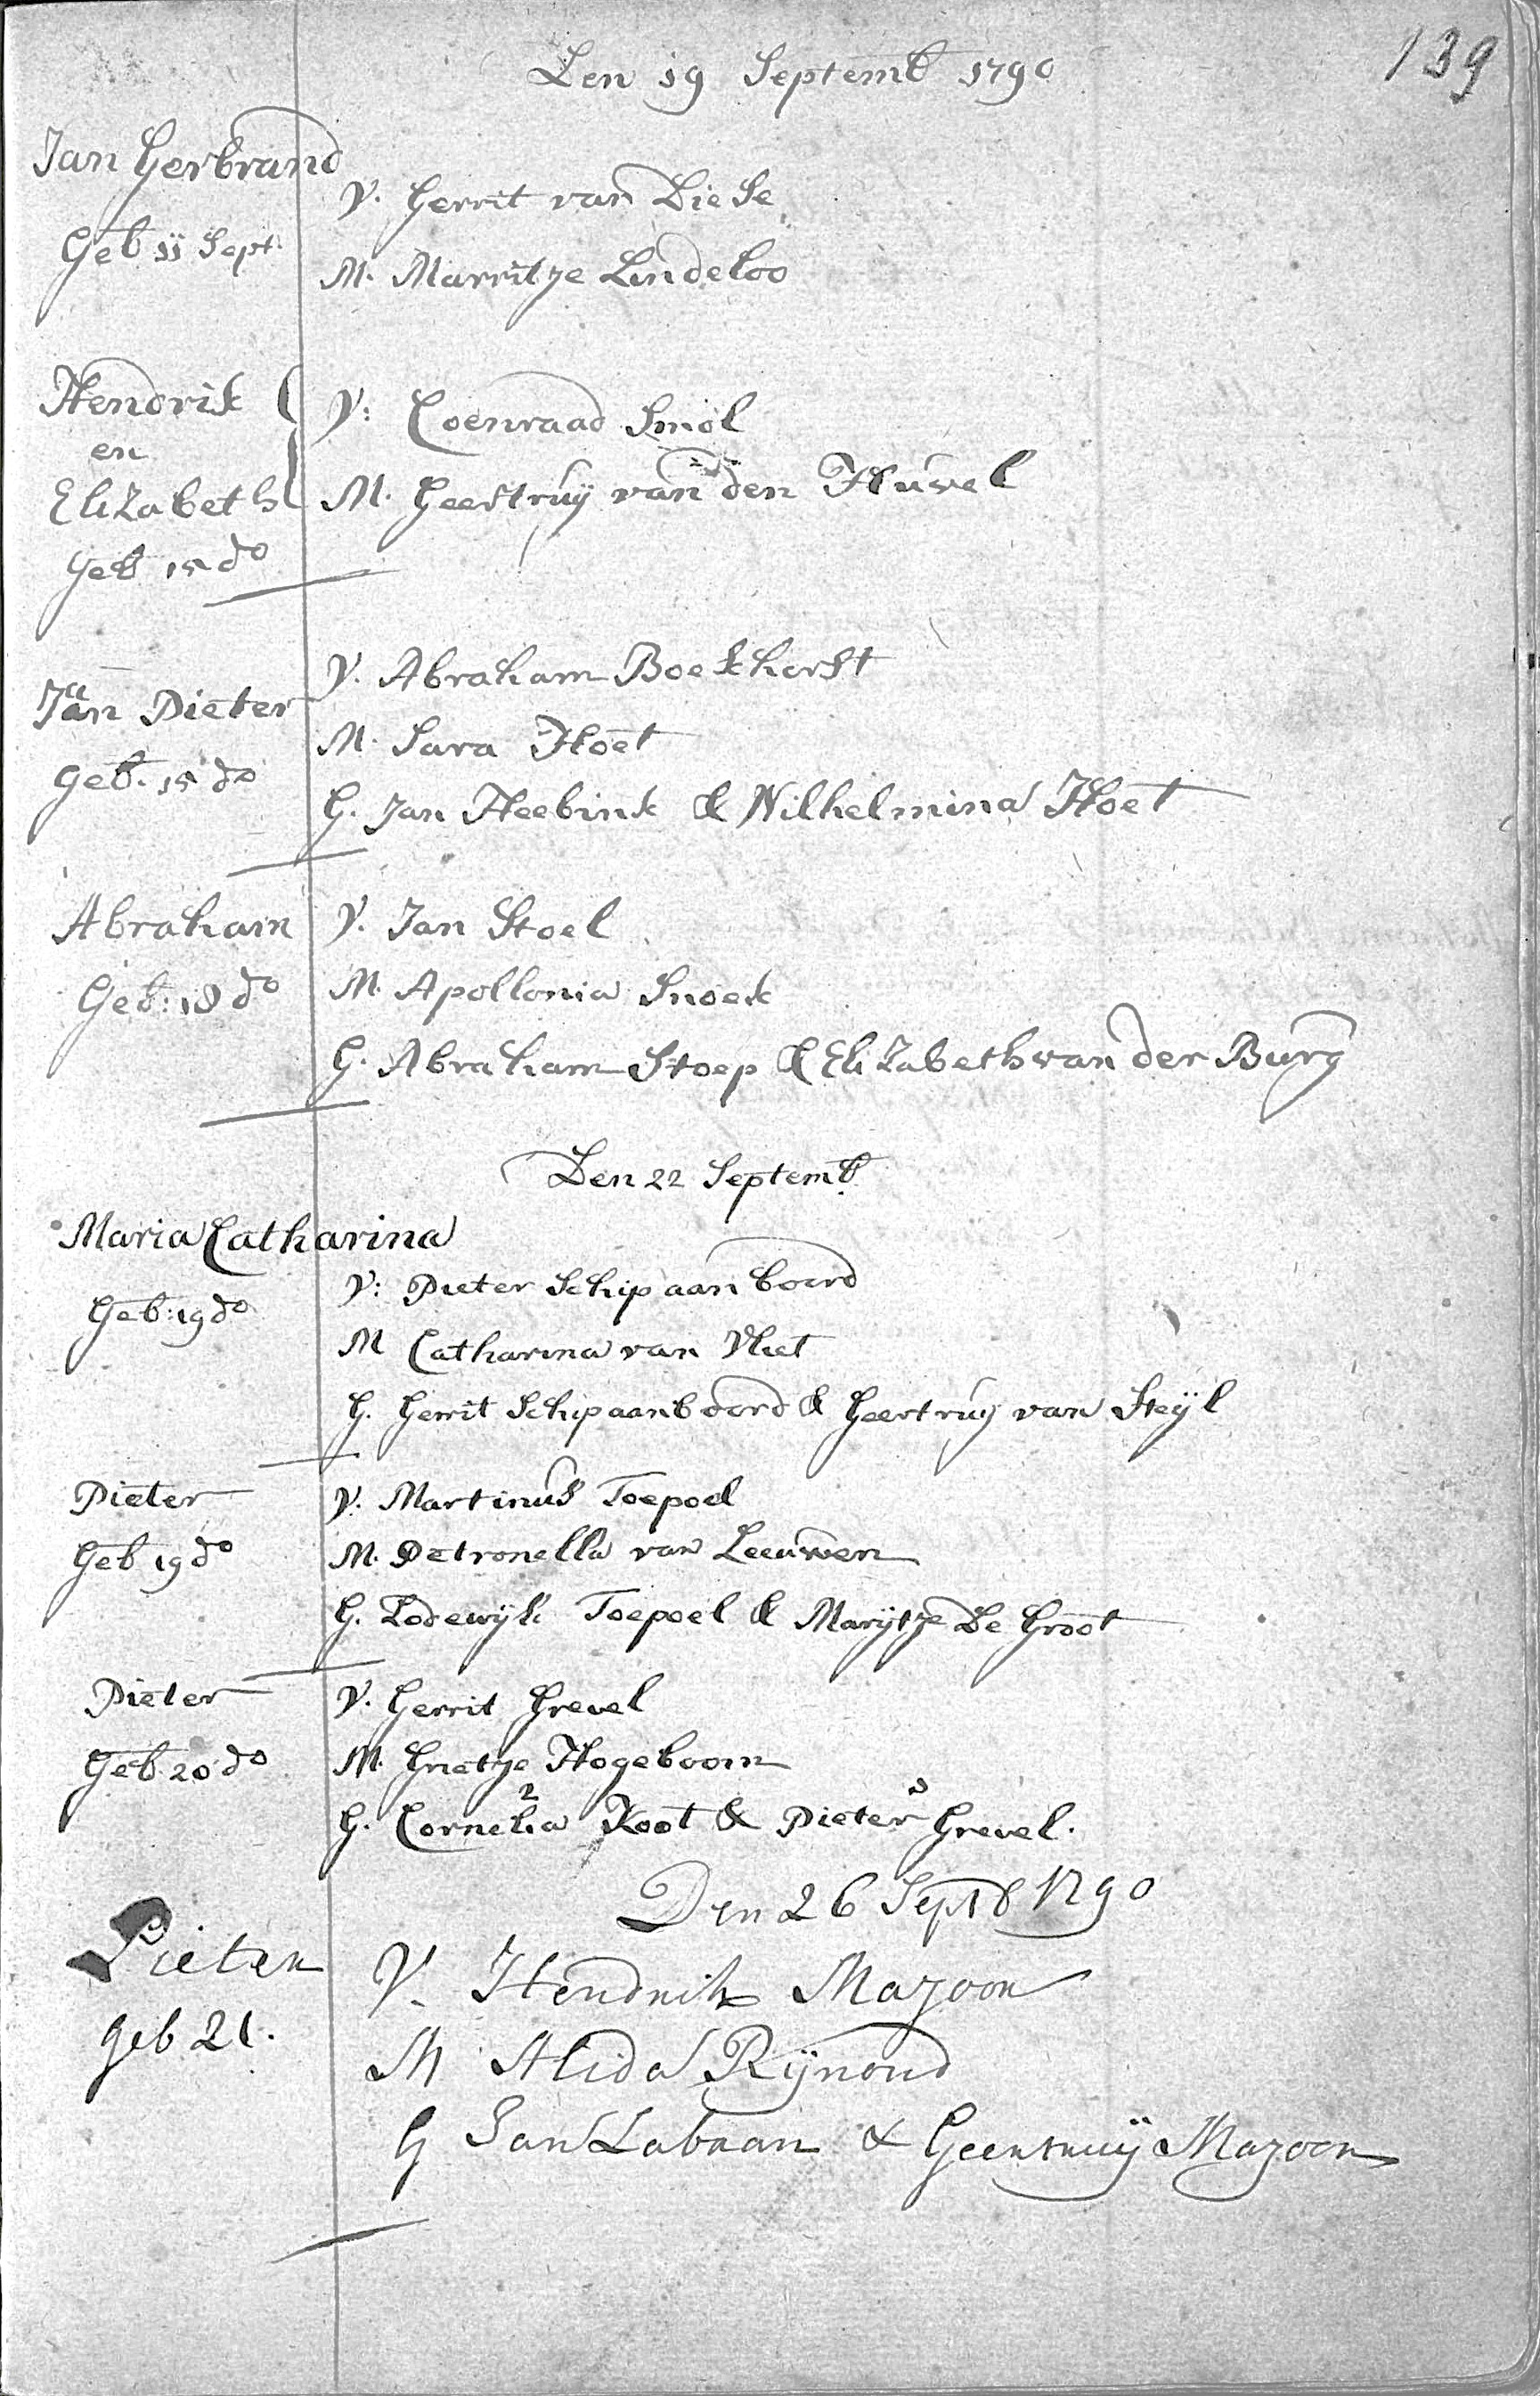 Den 19 Septemb 1790
139
Jan Gerbrand
Geb 11 Sept.
V. Gerrit van Die Se
M. Marritje Lindeloo
Hendrik
en
Elizabeth
Geb 15 do
V: Coenraad Smol
M. Geertruij van den Huvel
Jan Pieter
geb. 15 do
V. Abraham Boekhorst
M. Sara Hoet
G. Jan Heebink & Wilhelmina Hoet
Abraham
Geb: 18 do
V. Jan Stoel
M. Apollonia Snoek
G. Abraham Stoep & Elizabeth van der Burg
Den 22 Septemb.
Maria Catharina
Geb: 19 do
V: Pieter Schip aan boord
M Catharina van Vliet
G. Gerrit Schipaanboord & Geertruij van Steijl
Pieter
Geb 19 do
V. Martinus Toepoel
M. Petronella van Leeuwen
G. Lodewijk Toepoel & Marijtje De Groot
Pieter
Geb. 20 do
V. Gerrit Grevel
M. Grietje Hogeboom
G. Cornelia Koot & Pieter Grevel.
Den 26 Septb 1790
Pieter
geb 21.
V. Hendrik Majoor
M Alida Rijnoud
G Jan Labaan & Geertruij Majoor